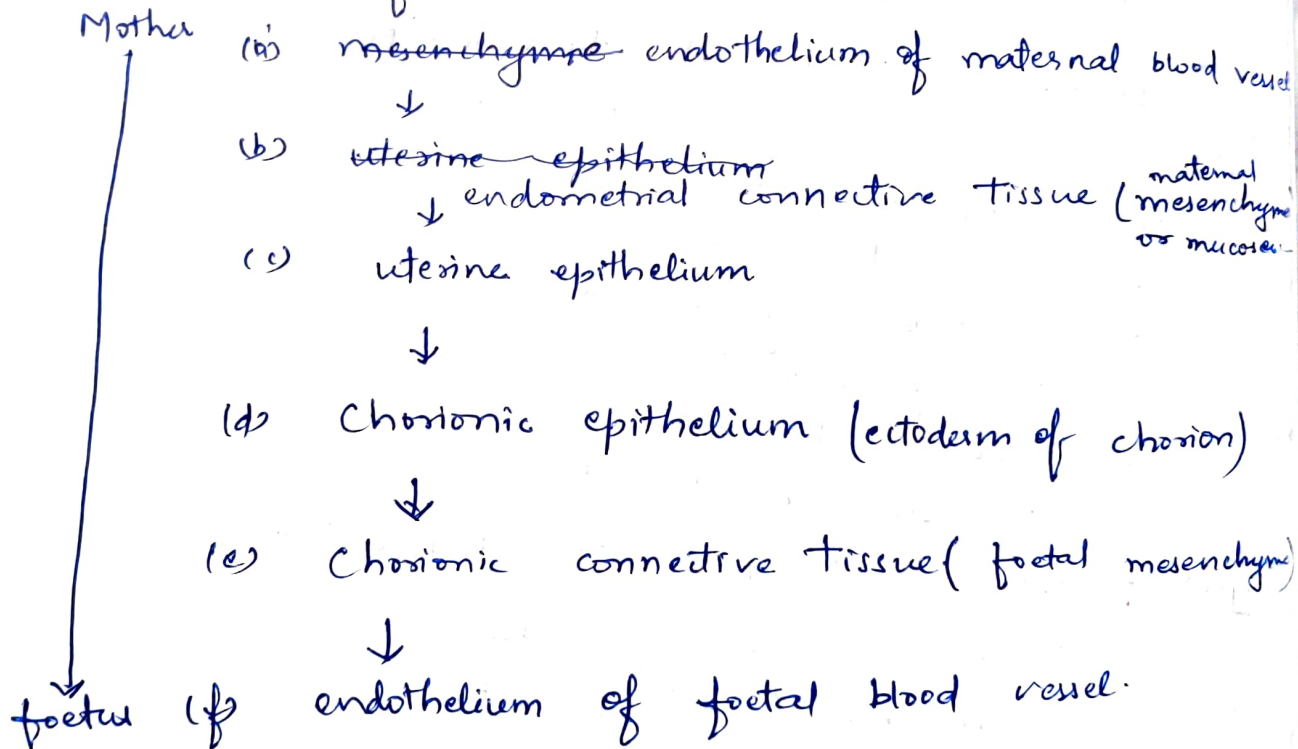 Mother
(a) mesenchyme endothelium of maternal blood vessel
↓
(b) uterine epithelium
↓ endometrial connective tissue (maternal mesenchyme or mucosa
(c) uterine epithelium
↓
(d) Chorionic epithelium (ectoderm of chorion)
↓
(e) Chorionic connective tissue (foetal mesenchyme)
↓
foetus (f) endothelium of foetal blood vessel.